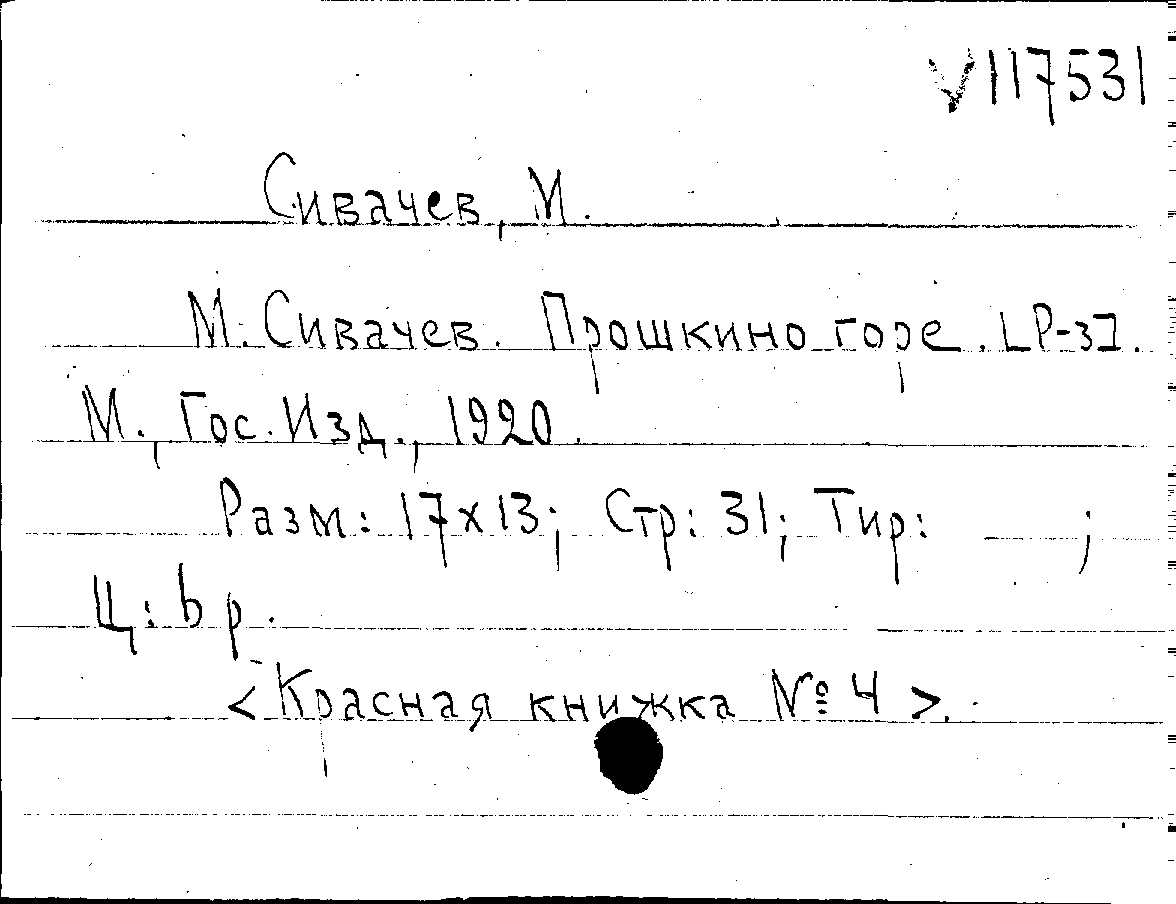 V117531
Сивачев, М.
М. Сивачев. Прошкино горе. [Р-з].
М., Гос. Изд., 1920.
Разм: 17х13; Стр: 31; Тир: ;
Ц: 6 р.
<Красная книжка № 4>.